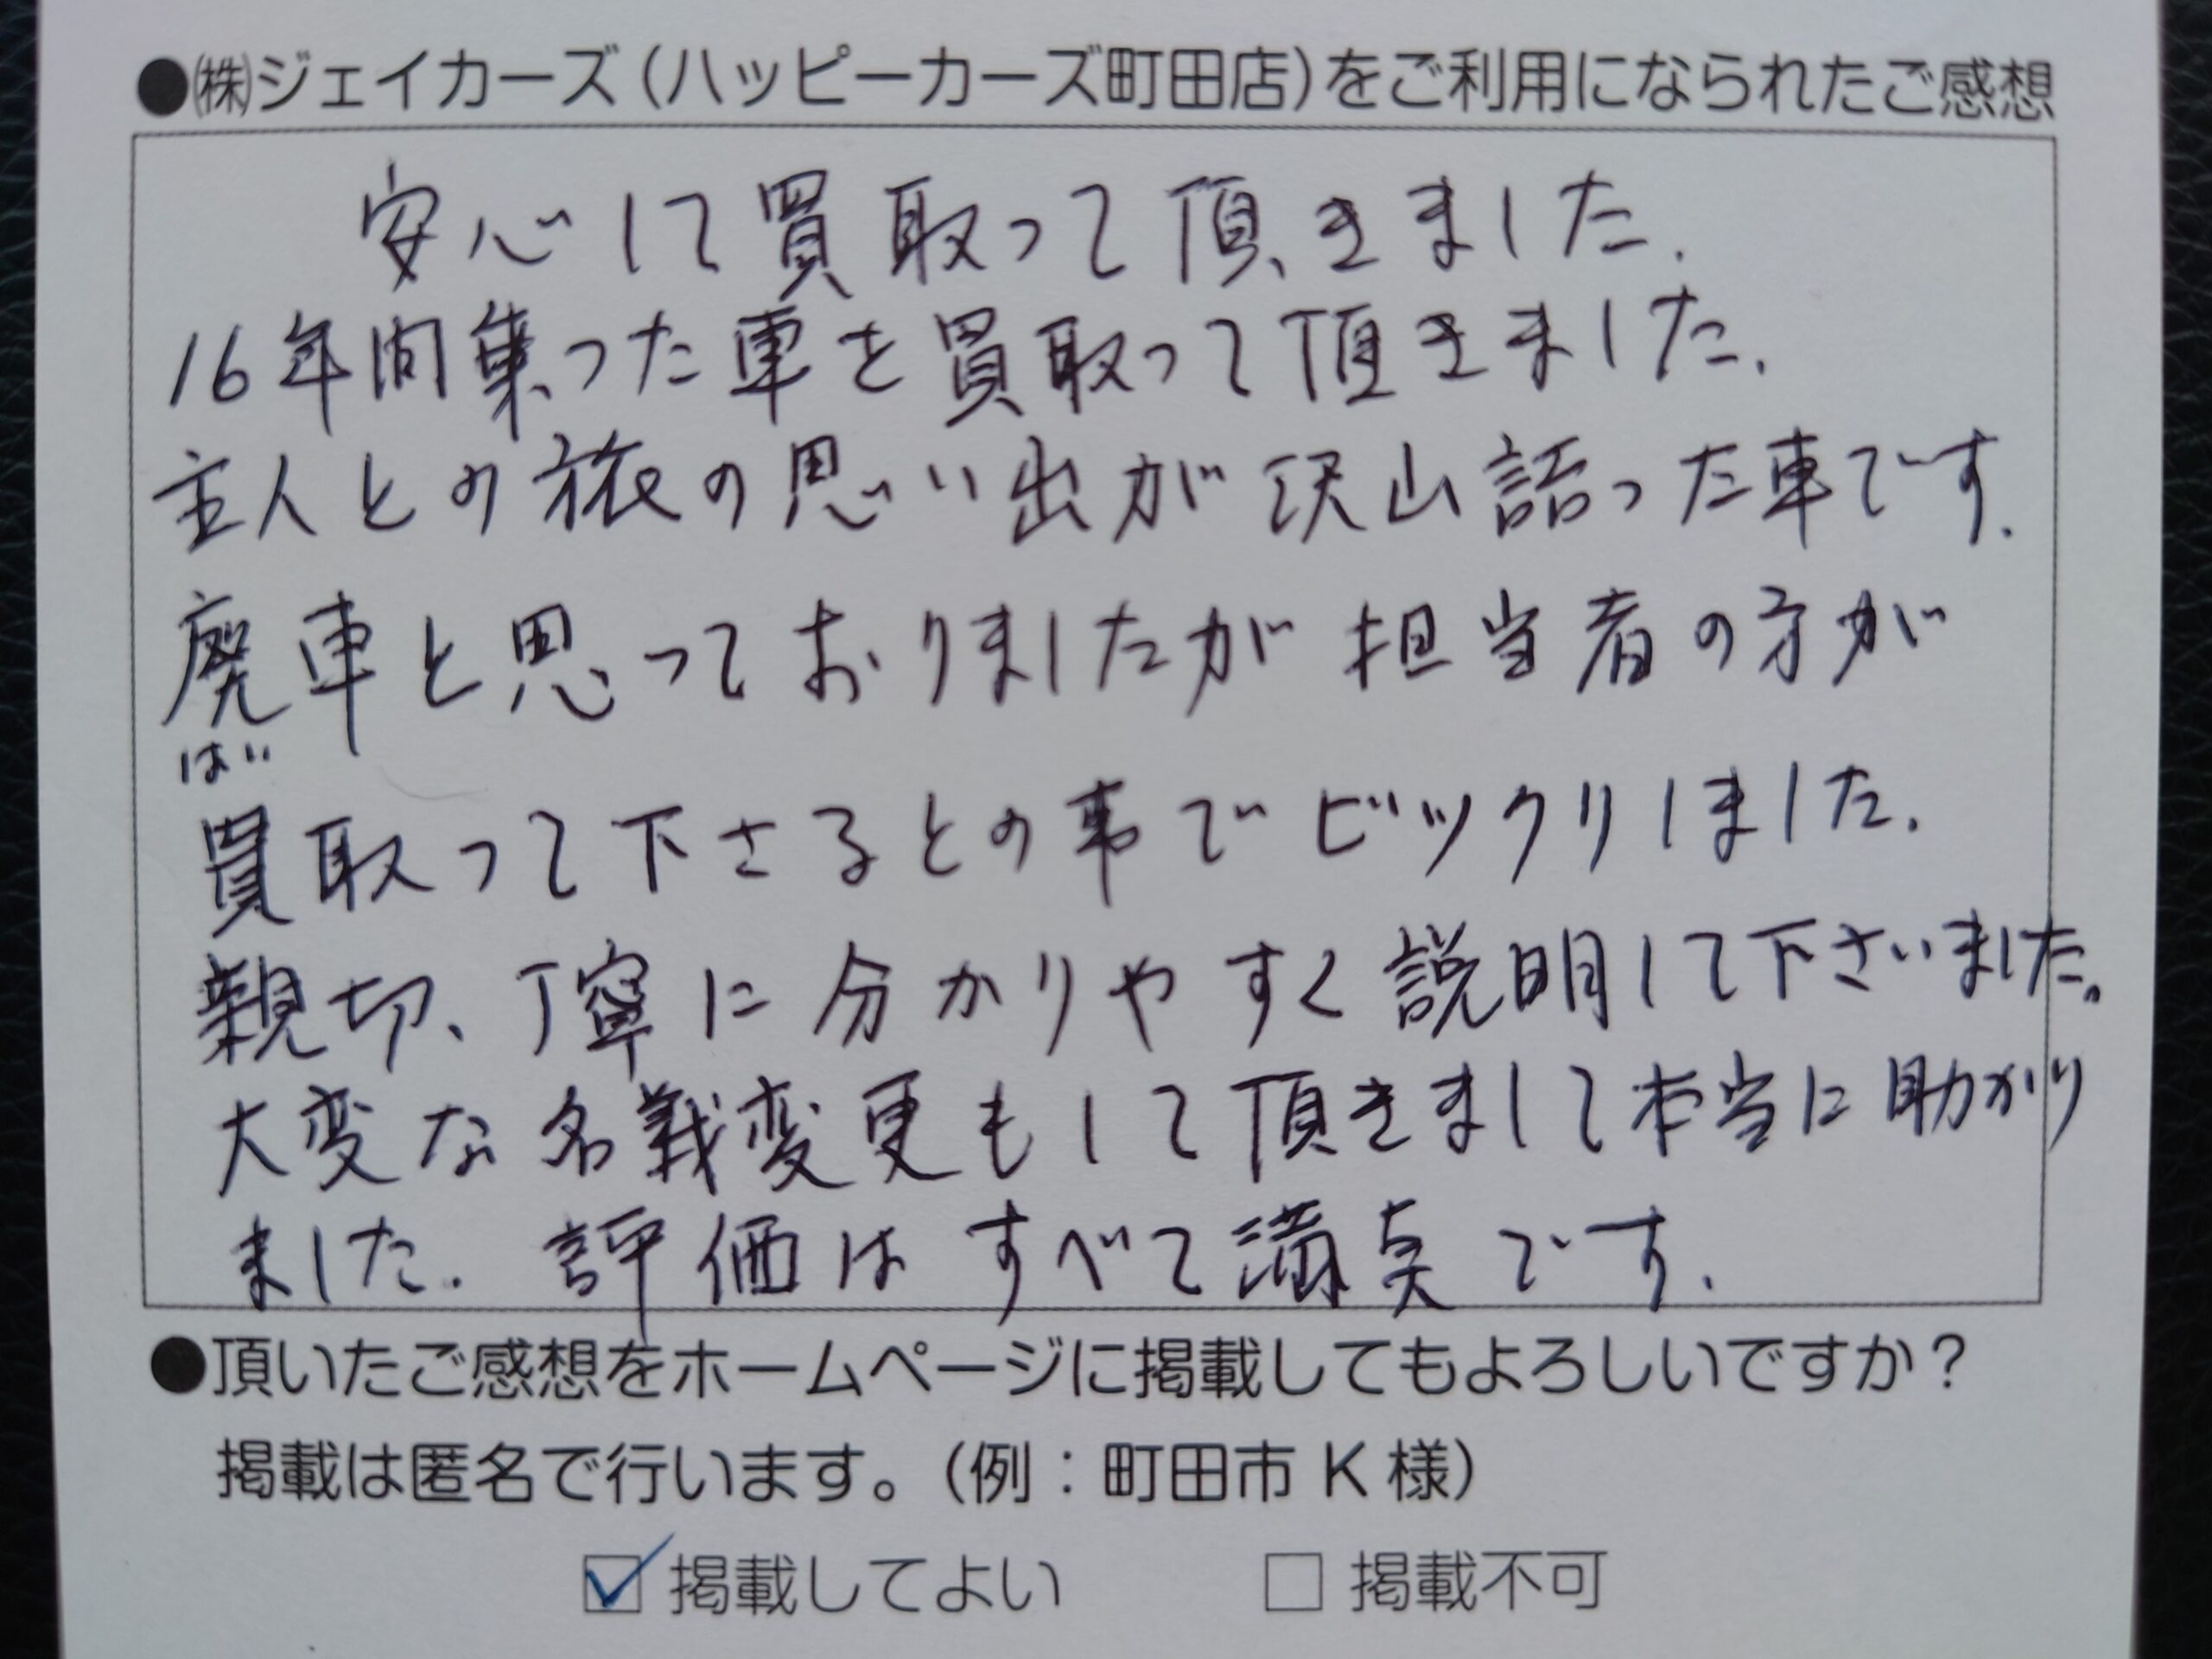 ●㈱ジェイカーズ(ハッピーカーズ町田店)をご利用になられたご感想
安心して買取って頂きました.
16年間乗った車を買取って頂きました.
主人との旅の思い出が沢山詰った車です.
廃車と思っておりましたが担当者の方が
ばい
買取って下さるとの事でビックリしました.
親切、丁寧に分かりやすく説明して下さいました。
大変な名義変更もして頂きまして本当に助かり
ました. 評価はすべて満点です.
●頂いたご感想をホームページに掲載してもよろしいですか?
掲載は匿名で行います。(例:町田市 K 様)
☑ 掲載してよい □ 掲載不可